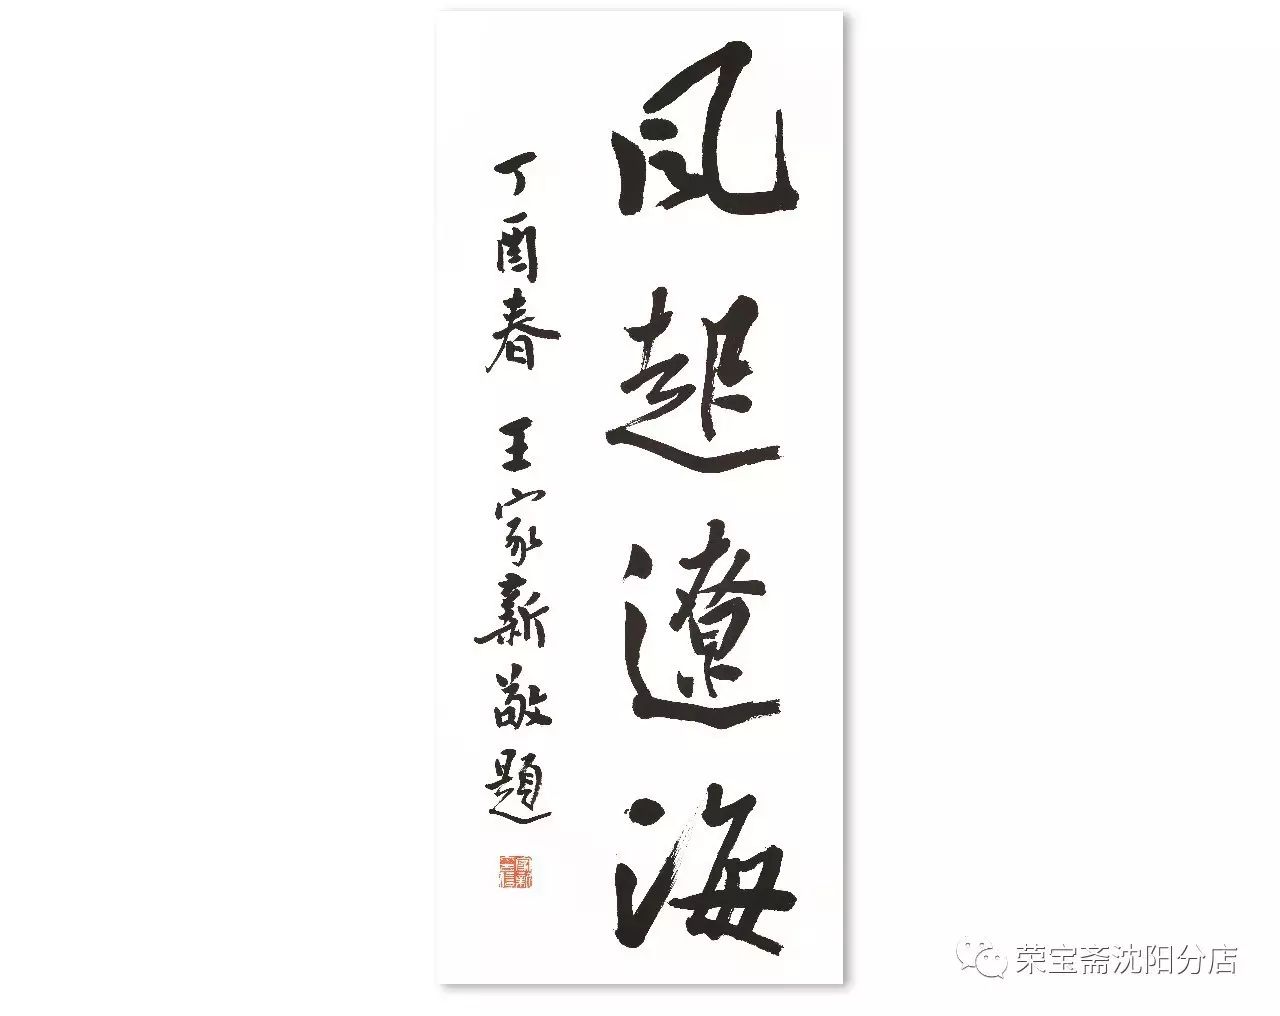 风起辽海
丁酉春 王家新敬题
荣宝斋沈阳分店